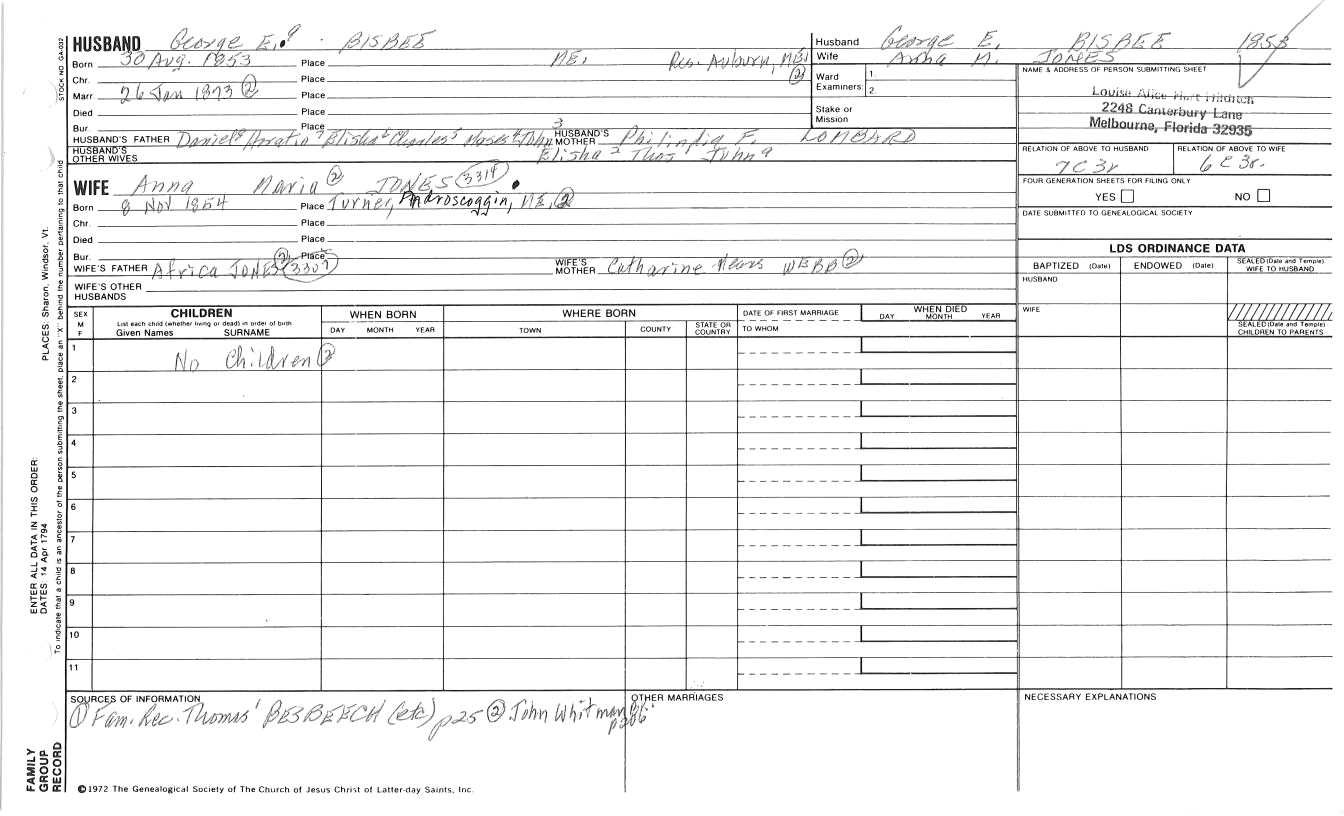 HUSBAND George E.9 - BISBEE
Born 30 Aug. 1853 Place ME. Res. Auburn, ME. (2)
Chr. Place
Marr 26 Jan 1873 (2) Place
Died Place
Bur. Place
HUSBAND'S FATHER Daniel8 Horatio7 Elisha6 Charles5 Moses4 John3 HUSBAND'S MOTHER Philindia F. LOMBARD
HUSBAND'S OTHER WIVES Elisha2 Thos1 John9
Husband George E. BISBEE 1853
Wife Anna M. JONES
Ward Examiners: 1. 2.
Stake or Mission
NAME & ADDRESS OF PERSON SUBMITTING SHEET
Louise Alice Hart Hilditch
2248 Canterbury Lane
Melbourne, Florida 32935
RELATION OF ABOVE TO HUSBAND RELATION OF ABOVE TO WIFE
7C3r 6C3r.
FOUR GENERATION SHEETS FOR FILING ONLY
YES NO
DATE SUBMITTED TO GENEALOGICAL SOCIETY
WIFE Anna Maria (2) JONES (3314)
Born 8 Nov 1854 Place Turner, Androscoggin, ME, (2)
Chr. Place
Died Place
Bur. Place
WIFE'S FATHER Africa JONES (2) (3307) WIFE'S MOTHER Catharine Mears WEBB (2)
WIFE'S OTHER HUSBANDS
LDS ORDINANCE DATA
BAPTIZED (Date) ENDOWED (Date) SEALED (Date and Temple) WIFE TO HUSBAND
HUSBAND
WIFE
SEALED (Date and Temple) CHILDREN TO PARENTS
SEX M F
CHILDREN
List each child (whether living or dead) in order of birth
Given Names SURNAME
WHEN BORN
DAY MONTH YEAR
WHERE BORN
TOWN COUNTY STATE OR COUNTRY
DATE OF FIRST MARRIAGE
TO WHOM
WHEN DIED
DAY MONTH YEAR
1 No Children (2)
2
3
4
5
6
7
8
9
10
11
SOURCES OF INFORMATION
(1) Fam. Rec. Thomas' BESBEECH (etc) p25 (2) John Whitman
OTHER MARRIAGES
NECESSARY EXPLANATIONS
©1972 The Genealogical Society of The Church of Jesus Christ of Latter-day Saints, Inc.
STOCK NO GA-032
PLACES: Sharon, Windsor, Vt.
ENTER ALL DATA IN THIS ORDER:
DATES 14 Apr 1794
To indicate that a child is an ancestor of the person submitting the sheet, place an "X" behind the number pertaining to that child
FAMILY GROUP RECORD